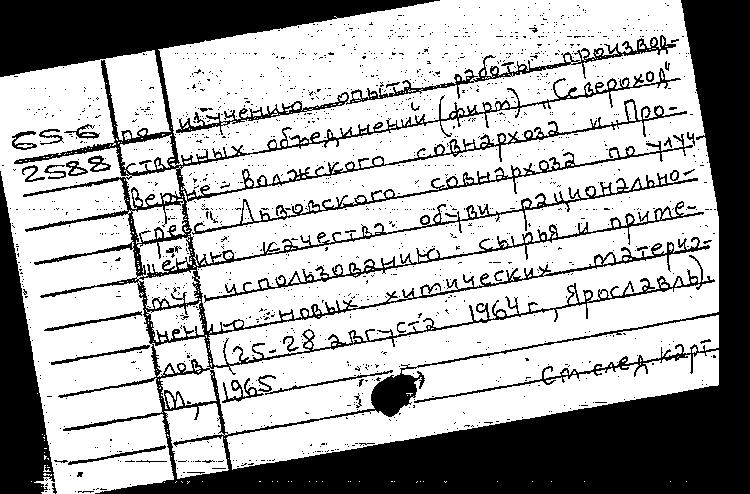 65-6 по изучению опыта работы производ-
2588 ственных объединений (фирм) „Североход"
Верхне-Волжского совнархоза и „Про-
гресс" Львовского совнархоза по улуч-
шению качества обуви, рационально-
му использованию сырья и приме-
нению новых химических материа-
лов (25-28 августа 1964 г., Ярославль).
М., 1965
См. след. карт.